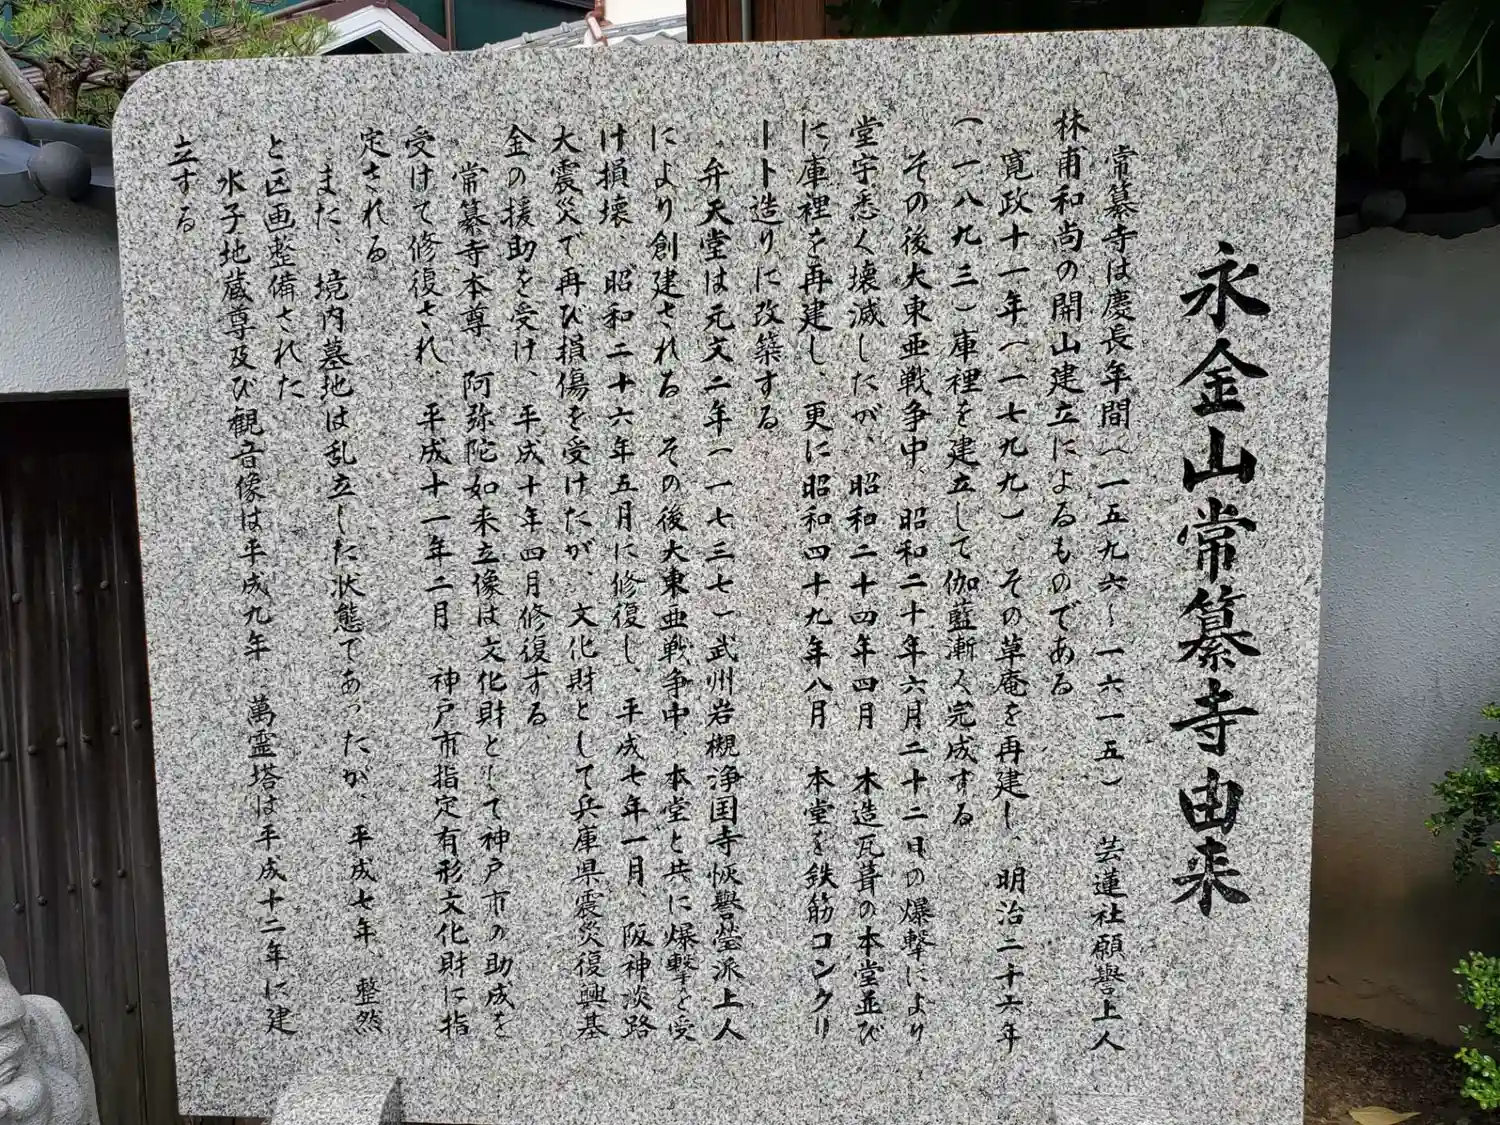 永金山常纂寺由来
常纂寺は慶長年間（一五九六〜一六一五）　芸蓮社願譽上人
林甫和尚の開山建立によるものである
寛政十一年（一七九九）、その草庵を再建し、明治二十六年
（一八九三）庫裡を建立して伽藍漸く完成する
その後大東亜戦争中、昭和二十年六月二十二日の爆撃により
堂宇悉く壊滅したが、昭和二十四年四月　木造瓦葺の本堂並び
に庫裡を再建し、更に昭和四十九年八月　本堂を鉄筋コンクリ
ート造りに改築する
弁天堂は元文二年（一七三七）武州岩槻浄国寺恢譽瑩派上人
により創建される　その後大東亜戦争中、本堂と共に爆撃を受
け損壊、昭和二十六年五月に修復し、平成七年一月、阪神淡路
大震災で再び損傷を受けたが、文化財として兵庫県震災復興基
金の援助を受け、平成十年四月修復する
常纂寺本尊、阿弥陀如来立像は文化財として神戸市の助成を
受けて修復され、平成十一年二月、神戸市指定有形文化財に指
定される
また、境内墓地は乱立した状態であったが、平成七年、整然
と区画整備された
水子地蔵尊及び観音像は平成九年、萬霊塔は平成十二年に建
立する